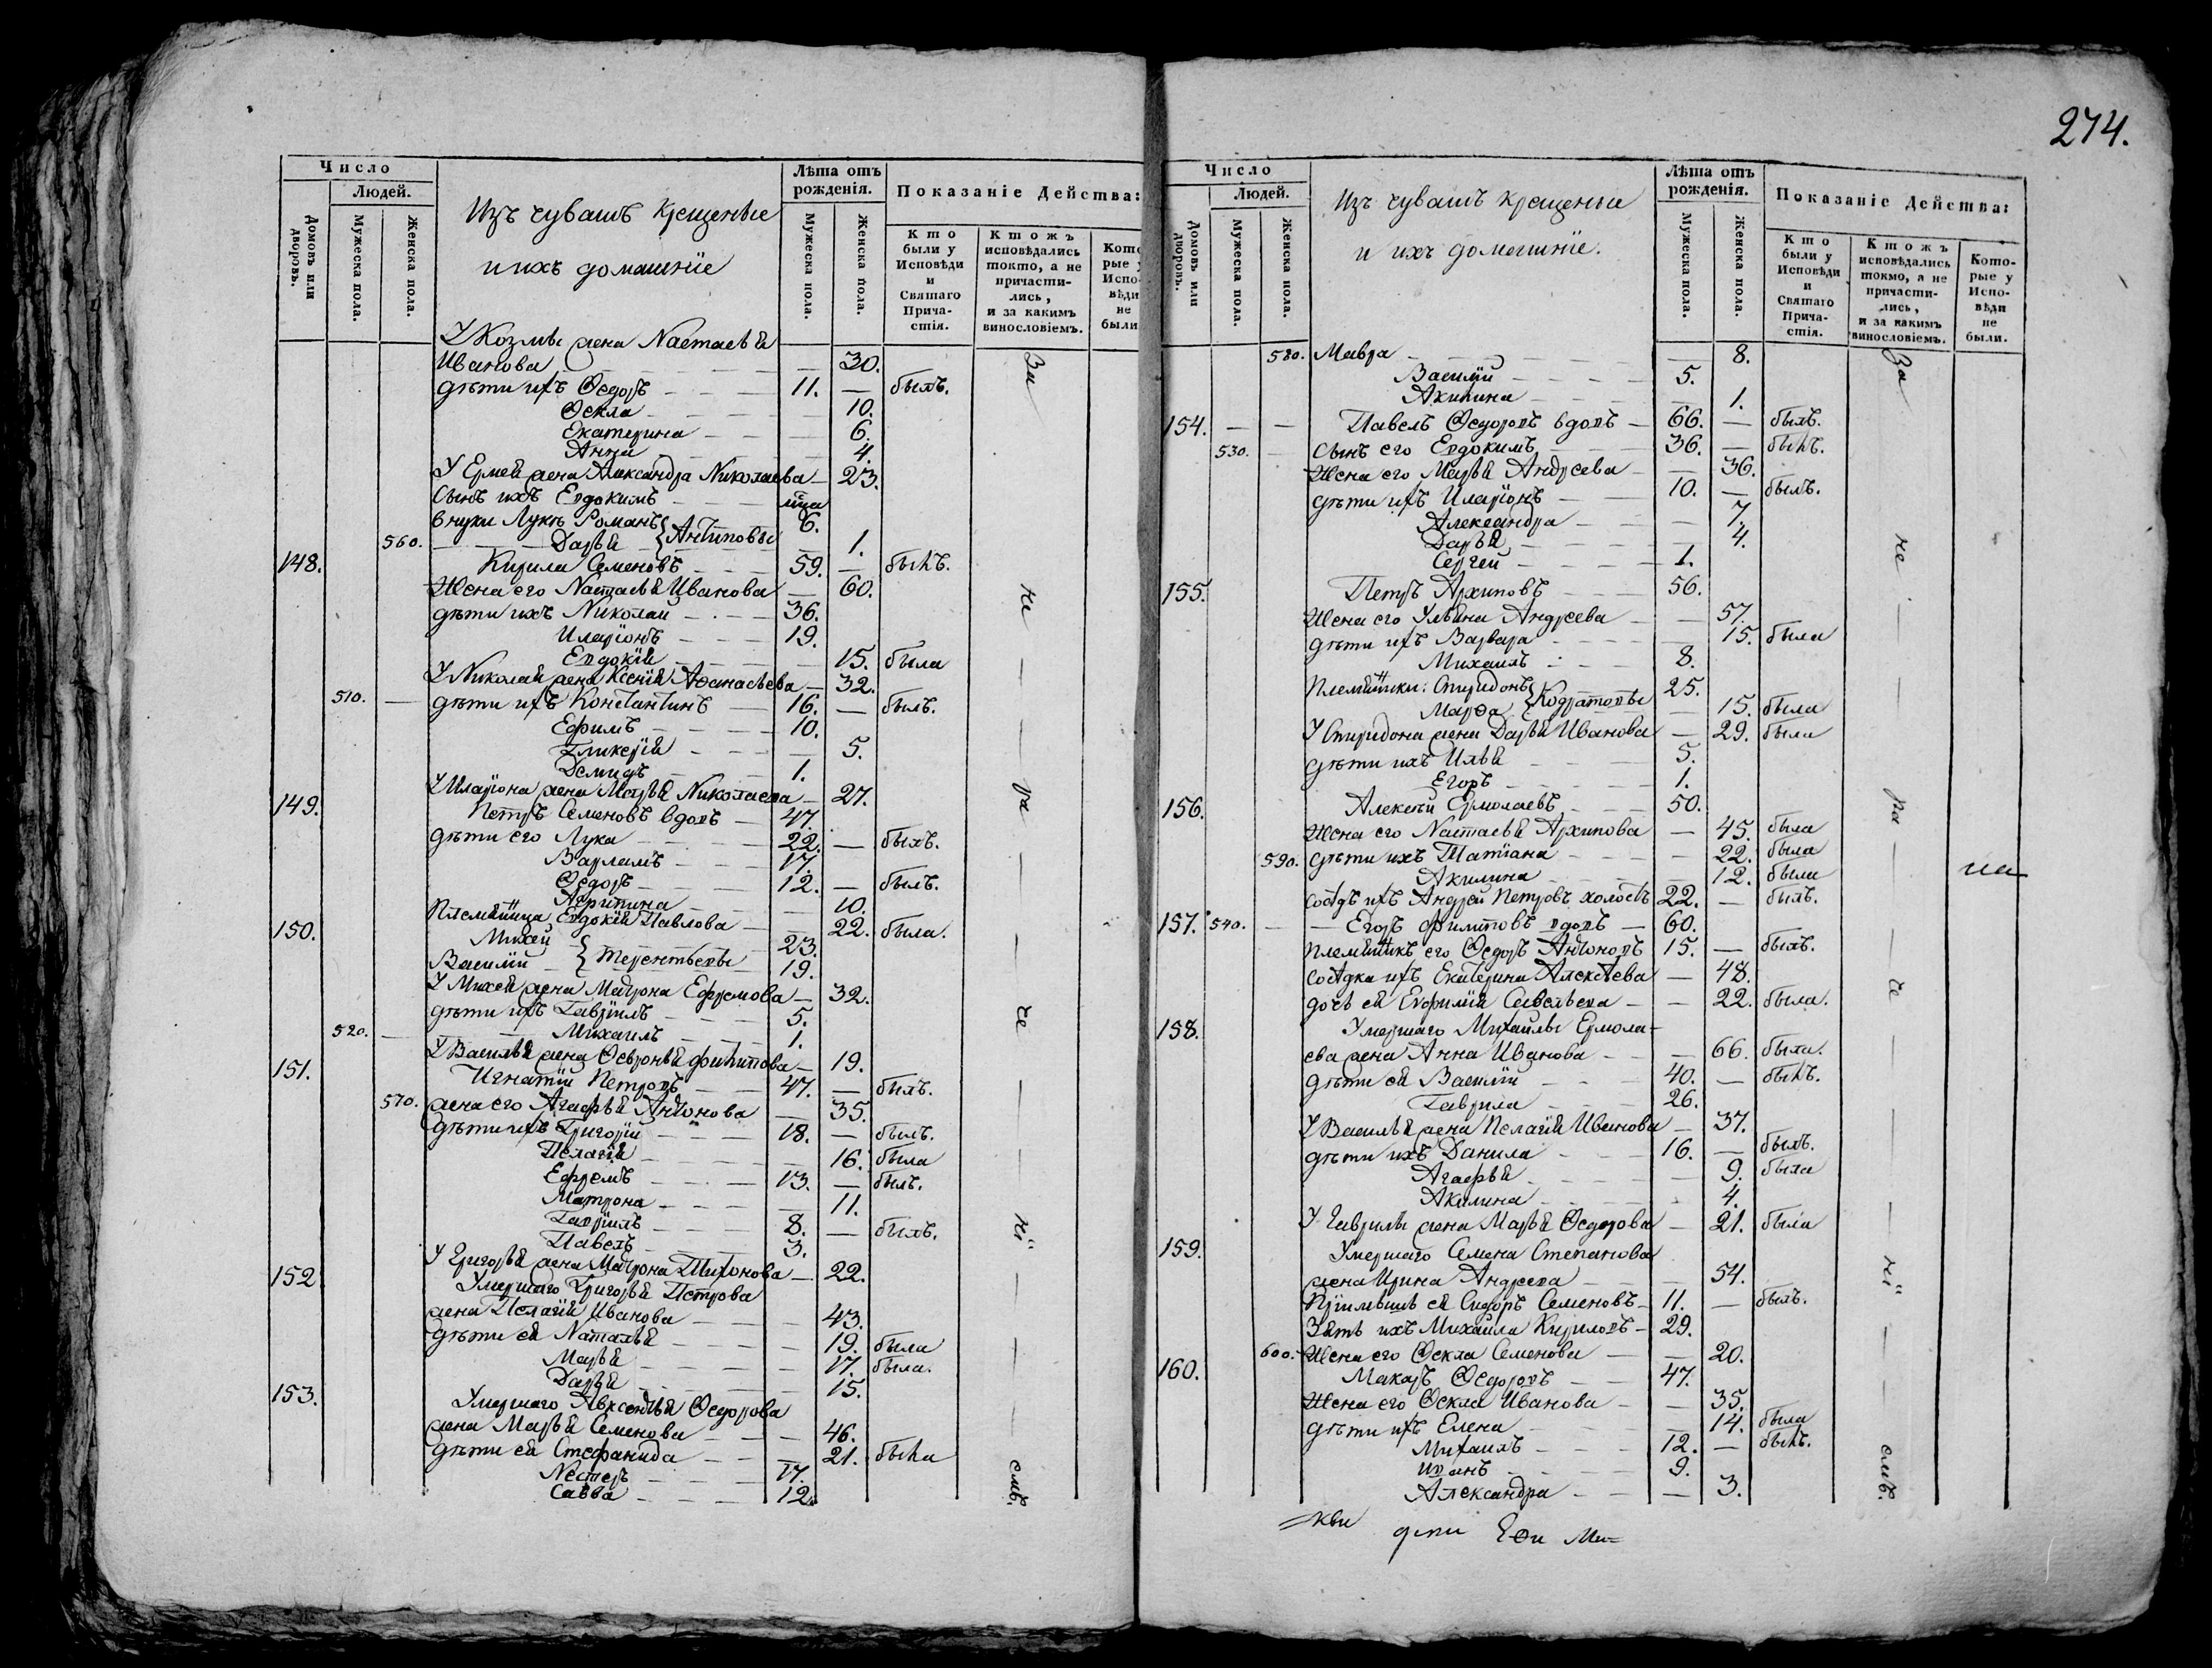 274.
Число
Людей.
Домовъ или дворовъ.
Мужеска пола.
Женска пола.
Изъ чувашъ крещеные
и ихъ домашніе
Лѣта отъ рожденія.
Мужеска пола.
Женска пола.
Показаніе Действа:
Кто были у Исповѣди и Святаго Причастія.
Ктожъ исповѣдались токто, а не причастились, и за какимъ винословіемъ.
Которые у Исповѣди не были
У Козмы жена Настасья
Иванова 30.
дѣти ихъ Ѳедоръ 11. — былъ.
Ѳекла 10.
Екатерина 6.
Анна 4.
У Ермея жена Александра Николаева 23.
Сынъ ихъ Евдокимъ
внуки Луки Романъ } Антиповы 6.
560. Дарья 1.
148. Кирила Семеновъ 59. — былъ.
Жена его Настасья Иванова — 60.
дѣти ихъ Николай 36.
Иларіонъ 19.
Евдокія 15. была
У Николая жена Ксенія Афанасьева — 32.
510. — дѣти ихъ Константинъ 16. — былъ.
Ефимъ 10.
Гликерія 5.
Демидъ 1.
У Иларіона жена Марья Николаева — 27.
149. Петръ Семеновъ вдовъ — 47.
дѣти его Лука 22. — былъ.
Варламъ 17.
Ѳедоръ 12. — былъ.
Агрипина 10.
Племянница Евдокія Павлова — 22. была.
150. Михей } Терентьевы 23.
Василій 19.
У Михея жена Матрона Ефремова — 32.
дѣти ихъ Гавріилъ 5.
520. — Михаилъ 1.
У Василья жена Ѳевронья Филипова — 19.
151. Игнатій Петровъ 47. — былъ.
570. жена его Агафья Антонова — 35.
дѣти ихъ Григорій 18. — былъ.
Пелагія 16. была
Ефремъ 13. — былъ.
Матрона 11.
Гавріилъ 8. — былъ.
Павелъ 3.
У Григорья жена Матрона Тихонова — 22.
152 Умершаго Григорья Петрова
жена Пелагія Иванова 43.
дѣти ея Наталья 19. была
Марья 17. была.
Дарья 15.
153. Умершаго Авксентья Ѳедорова
жена Марья Семенова 46.
дѣти ея Стефанида 21. была
Нестеръ 17.
Савва 12.
За не ра че ні смъ.
Число
Людей.
Домовъ или дворовъ.
Мужеска пола.
Женска пола.
Изъ чувашъ крещеные
и ихъ домашніе.
Лѣта отъ рожденія.
Мужеска пола.
Женска пола.
Показаніе Действа:
Кто были у Исповѣди и Святаго Причастія.
Ктожъ исповѣдались токмо, а не причастились, и за какимъ винословіемъ.
Которые у Исповѣди не были.
580. Мавра 8.
Василій 5.
Акилина 1.
154. — — Павелъ Ѳедоровъ вдовъ — 66. — былъ.
530. — Сынъ его Евдокимъ 36. — былъ.
Жена его Марья Андреева — 36.
дѣти ихъ Иларіонъ 10. — былъ.
Александра 7.
Дарья 4.
Сергей 1.
155. Петръ Архиповъ 56.
Жена его Ульяна Андреева — 57.
дѣти ихъ Варвара 15. была
Михаилъ 8.
Племянники: Спиридонъ } Кодратовы 25.
Марфа 15. была
У Спиридона жена Дарья Иванова — 29. была
дѣти ихъ Илья 5.
Егоръ 1.
156. Алексѣй Ермолаевъ 50.
Жена его Настасья Архипова — 45. была
590. дѣти ихъ Татіана 22. была
Акилина 12. была
сосѣдъ ихъ Андрей Петровъ холостъ 22. — былъ.
157. 540. — Егоръ Филиповъ вдовъ — 60.
племянникъ его Ѳедоръ Антоновъ 15. — былъ.
сосѣдка ихъ Екатерина Алексѣева — 48.
дочь ея Евфимія Савельева — 22. была.
158. Умершаго Михайлы Ермола-
ева жена Анна Иванова — 66. была.
дѣти ея Василій 40. — былъ.
Гаврила 26.
У Василья жена Пелагія Иванова — 37.
дѣти ихъ Данила 16. — былъ.
Агафья 9. была
Акилина 4.
У Гаврилы жена Марья Ѳедорова — 21. была
159. Умершаго Семена Степанова
жена Ирина Андреева 54.
Пріимышъ ея Сидоръ Семеновъ 11. — былъ.
Зять ихъ Михайла Кириловъ — 29.
600. Жена его Ѳекла Семенова — 20.
160. Макаръ Ѳедоровъ 47.
Жена его Ѳекла Иванова — 35.
дѣти ихъ Елена 14. была
Михаилъ 12. — былъ.
Иванъ 9.
Александра 3.
За не ра че ні смъ.